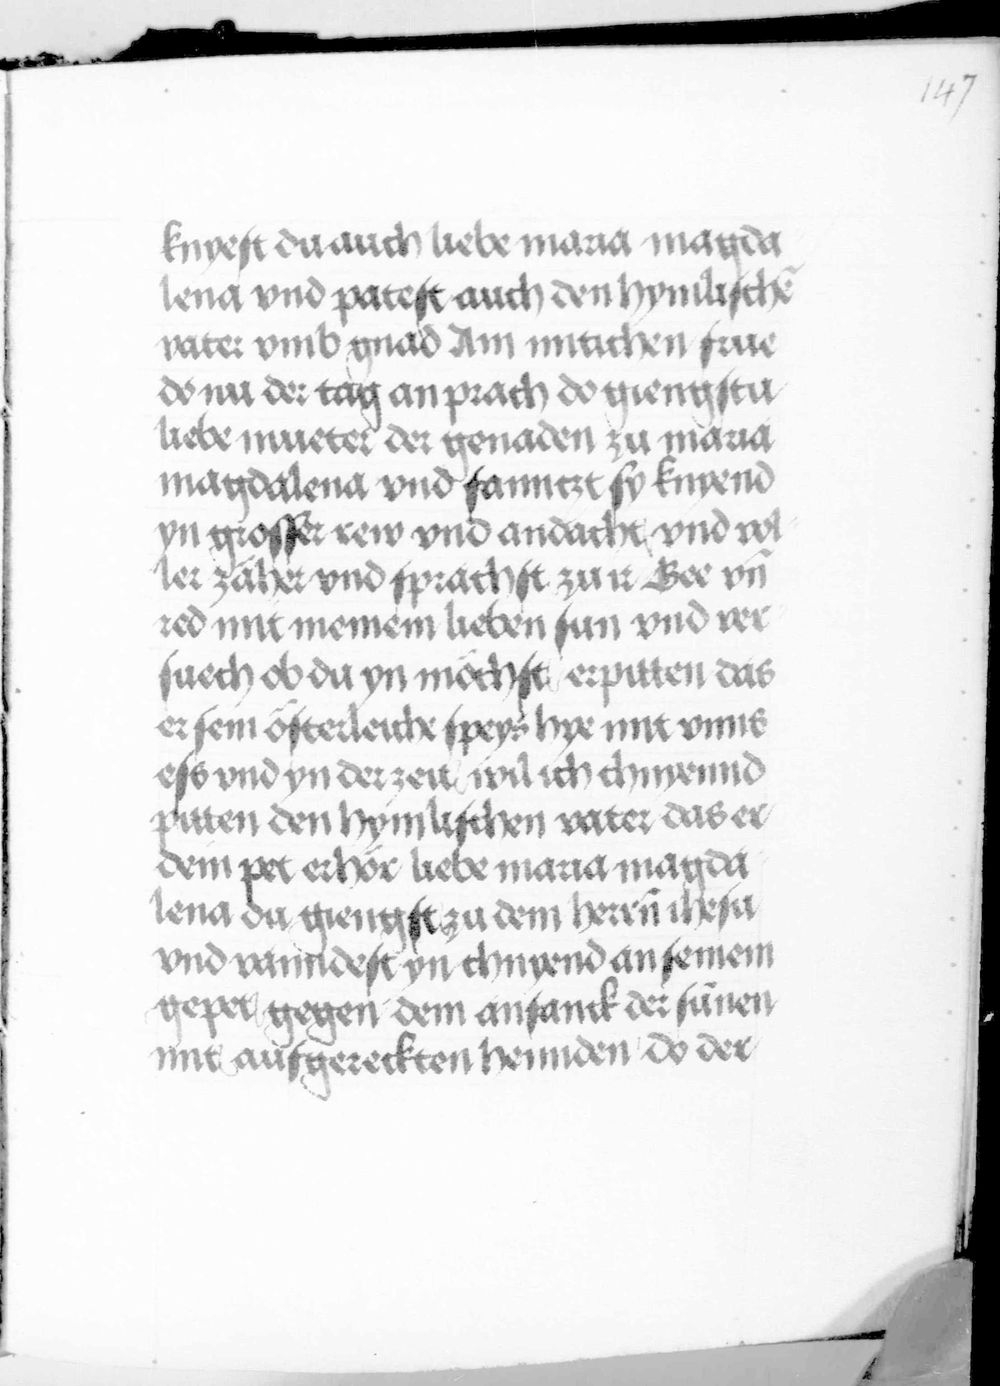 147
knyest du auch liebe maria magda
lena vnd patest auch den hymlischē
vater vmb gnad Am mitichen frue
do nu der tag an prach do giengstu
liebe mueter der genaden zu maria
magdalena vnd fanntzt sy knyend
yn grosser rew vnd andacht vnd vol
ler zäher vnd sprachst zu ir Gee vn̄
red mit meinem lieben sun vnd ver
suech ob du yn möchst erpitten das
er sein österleiche speys hye mit vnns
ess vnd yn der zeit wil ich chnyennd
pitten den hymlischen vater das er
dein pet erhör liebe maria magda
lena du giengst zu dem herrn̄ ihesu
vnd vanndest yn chnyend an seinem
gepet gegen dem anfanck der sunen
mit aufgereckten hennden do der